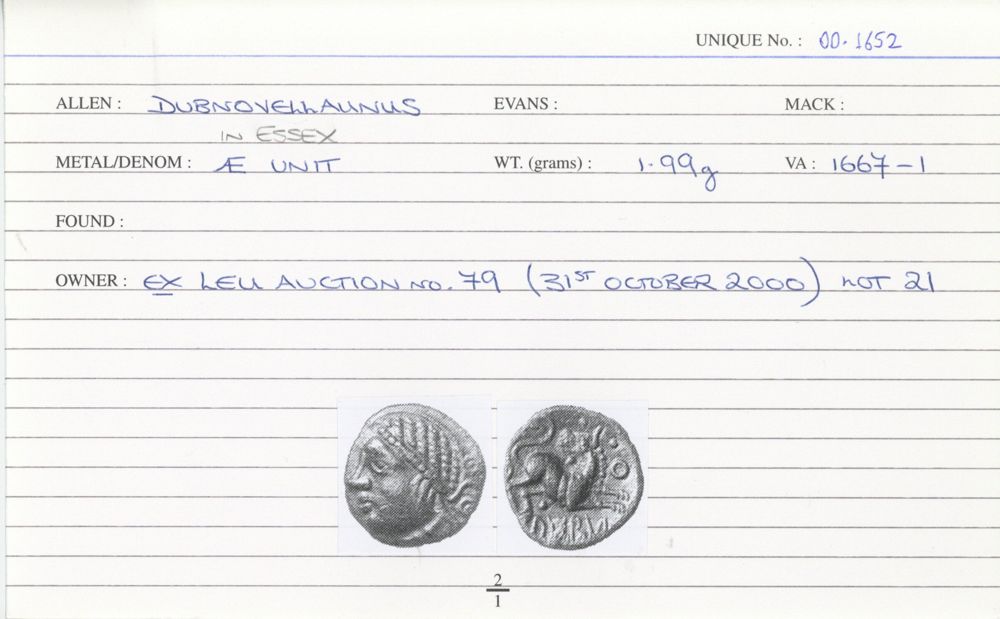 UNIQUE No. : 00.1652
ALLEN : DUBNOVELLAUNUS EVANS : MACK :
IN ESSEX
METAL/DENOM : Æ UNIT WT. (grams) : 1.99g VA : 1667-1
FOUND :
OWNER : EX LEU AUCTION NO. 79 (31ST OCTOBER 2000) LOT 21
2
1